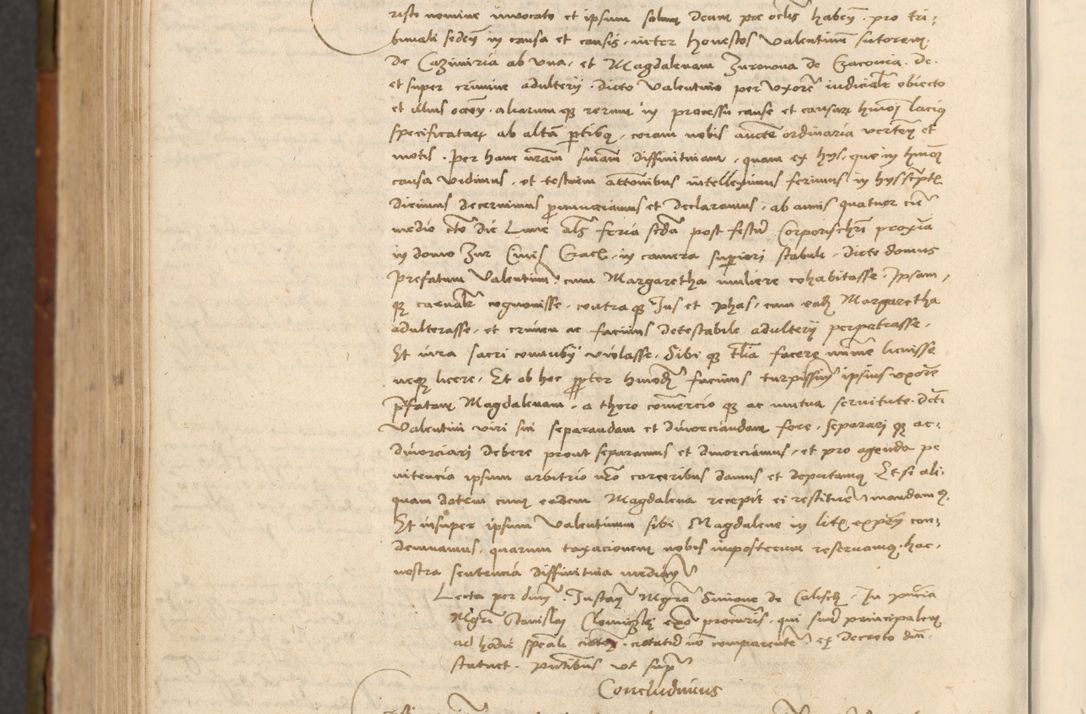 risto nomine invocato et ipsum solum Deum pre oclis habeñ. pro tri,
bunali sedeñ in causa et causis, inter honestos Valentinum sutorem
de Cazimiria ab una, et Magdalenam Zuronova de Cracovia. De
et super crimine adulterii. dicto Valentino per uxorē iudicialr obiecto
et illius occōñ. aliarum qz rerum in processu cause et causarum hmōi lacius
specificatarum ab altā ptibus, coram nobis aucte ordinaria verteñ et
motis. Per hanc nrām snīam diffinitivam, quam ex hys, que in hmōi
causa vidimus, et testium attonibus intelleximus ferimus in hys scriptis
dicimus decernimus pnunciamus et declaramus, ab annis quatuor cir
medio die Lune als feria scda post festum Corporis chri proxīa
in domo Zur Civis Crac. in camera superiori stabule, dicte domus
Prefatum Valentinum cum Margaretha muliere cohabitasse. Ipsam,
qz carnalr cognovisse, contra qz Jus et phas, cum eadē Margaretha
adulterasse, et crimen ac facinus detestabile adulterii perpetrasse,
Et iura sacri connubii violasse. Sibi qz tlīa facere minime licuisse
neqz licere, Et ob hoc propter hmōdi facinus turpissimum ipsius uxorē
pfatam Magdalenam, a thoro comercio qz ac mutua servitute. dcti
Valentini viri sui separandam et divorciandam fore, separari qz ac,
divorciari debere prout separamus et divorciamus, et pro agenda pe
nitencia ipsum arbitrio nro carceribus damus et deputamus. Et si ali
quam dotem cum eadem Magdalena recepit ei restituere mandamus.
Et insuper ipsum Valentinum sibi Magdalene in litis expeñ con,
demnamus, quarum taxacionem nobis imposterum reservamus. hac,
nostra sentencia diffinitiva mediañ
Lecta per dnm. Instañ Mgro Simone de Calisch. In pñcia
Mgri Stanislai ex procuris. qui suum principalem
ad hodie speali citatum non comparentem ex decreto dni
statuet. pñtibus ut supra
Concludimus